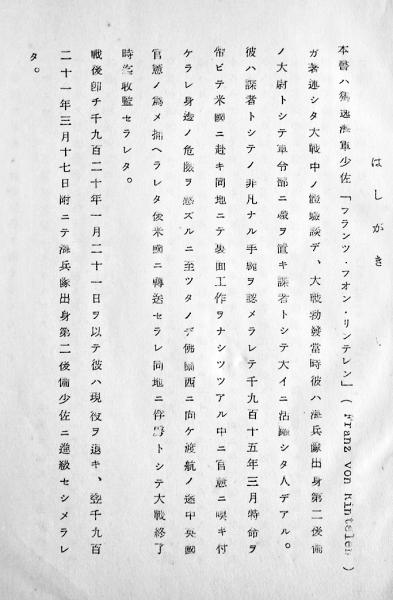 はしがき
本書ハ独逸海軍少佐「フランツ・フオン・リンテレン」(Franz von Rintelen)
ガ著述シタ大戦中ノ體驗談デ、大戦勃發當時彼ハ海兵隊出身第二後備
ノ大尉トシテ軍令部ニ籍ヲ置キ諜者トシテ大イニ活躍シタ人デアル。
彼ハ諜者トシテノ非凡ナル手腕ヲ認メラレテ千九百十五年三月特命ヲ
帶ビテ米國ニ赴キ同地ニテ裏面工作ヲナシツツアル中ニ官憲ニ嗅キ付
ケラレ身邊ノ危險ヲ感ズルニ至ツタノデ佛蘭西ニ向ケ渡航ノ途中英國
官憲ノ爲メ捕ヘラレタ後米國ニ轉送セラレ同地ニ俘虜トシテ大戦終了
時迄收監セラレタ。
戦後卽チ千九百二十年一月二十一日ヲ以テ彼ハ現役ヲ退キ、翌千九百
二十一年三月十七日附ニテ海兵隊出身第二後備少佐ニ進級セシメラレ
タ。